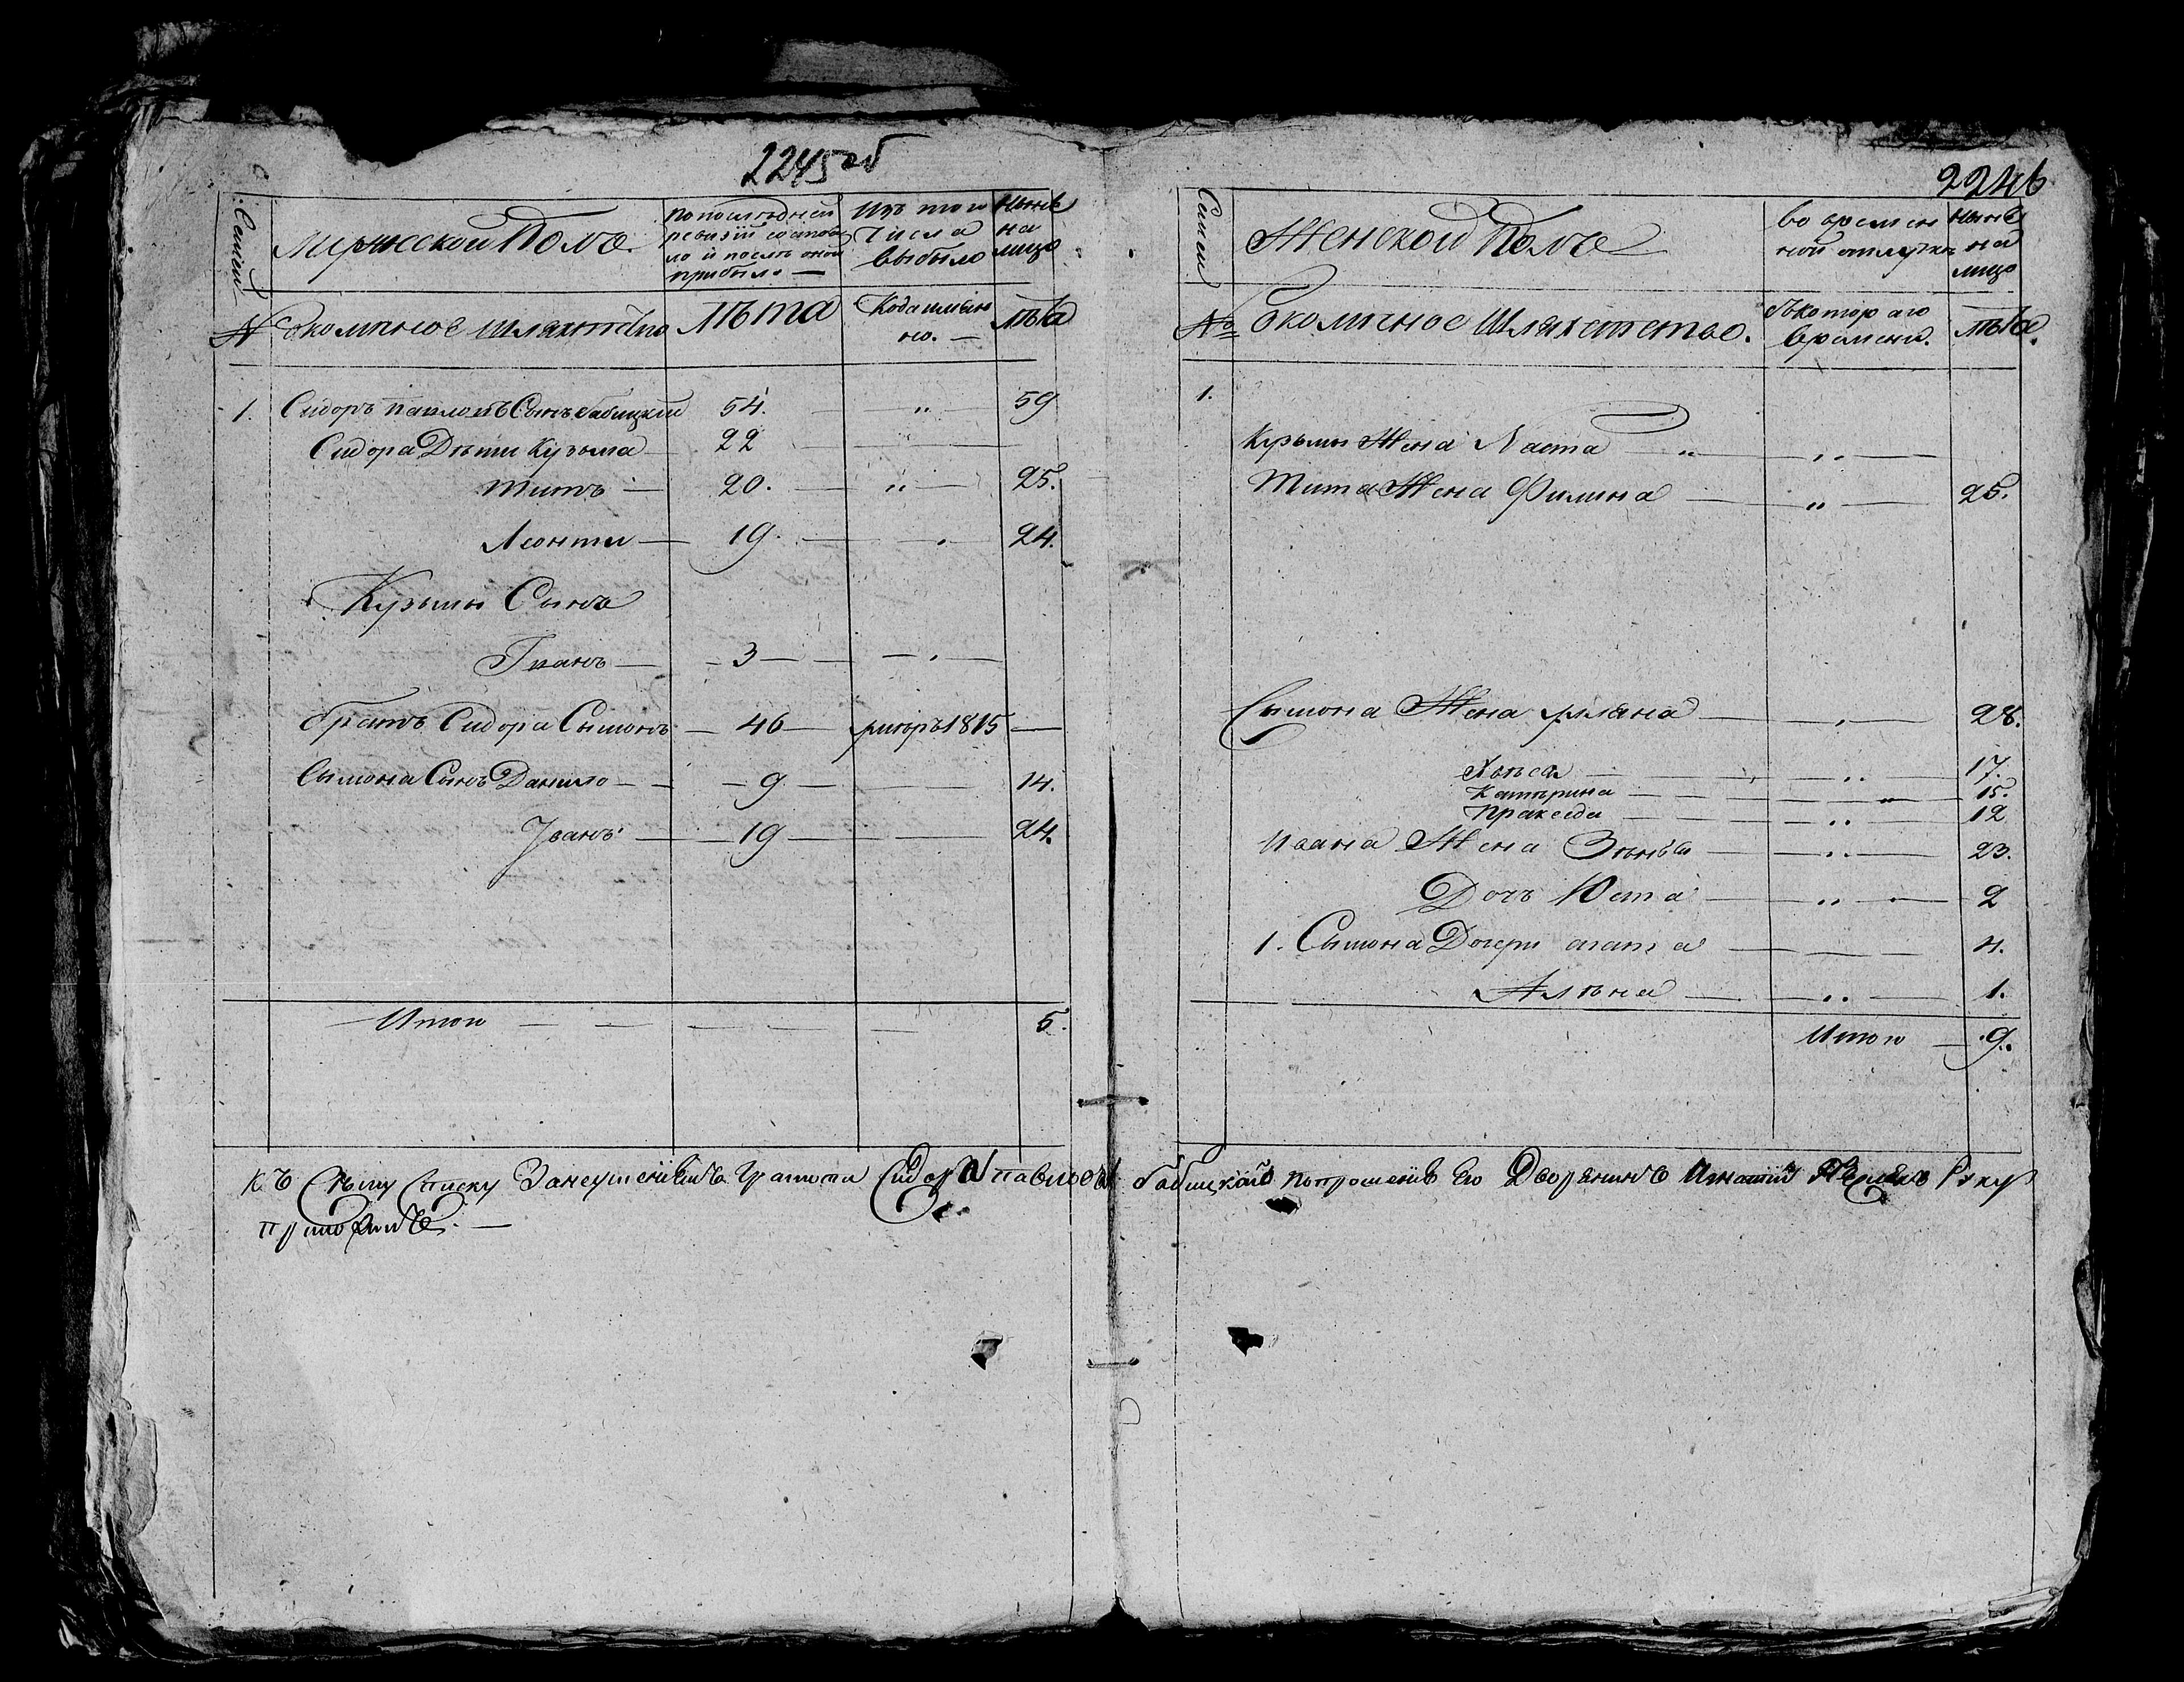 2245 об
Семеи
Мужеской Полъ
По последней
ревизіи состоя
ло и после оной
прибыло —
Изъ того
Числа
выбыло
Ныне
на
лицо
№
Околичное Шляхетство
Лѣта
Когда имен
но. —
Лѣта
1. Сидоръ Павловъ Сынъ Бабицкій 54. — „ 59
Сидора Дѣти Кузьма — 22
Титъ — 20. — „ — 25.
Леонти — 19. — „ 24.
Кузьмы Сынъ
Иванъ — 3 — — „ —
братъ Сидора Сымонъ — 46 — умеръ 1815 —
Сымона Сынъ Данило — — 9 — 14.
Іванъ — 19 — 24.
Итого — — — — — 5.
2246
Семеи
Женской Полъ
Во времен
ной отлучкѣ
Ныне
на
лицо
№
Околичное Шляхетство.
Съ котораго
времени.
Лѣта.
1.
Кузьмы Жена Наста — „ — „ —
Тита Жена Филина — „ — 25.
Сымона Жена Уляна — „ — 28.
17.
Катерина — „ — 15.
Праксида — „ — 12
Ивана Жена Зѣнъя — „ — 23.
Дочь Юста — „ — 2
1. Сымона Дочери агата — 4.
Алѣна — „ — 1.
Итого — 9.
Къ Сѣму Списку За неуменіемъ Грамоти Сидора Павлова Бабицкаго по прошенію Его Дворянинъ Игнатій Руку
приложилъ. —